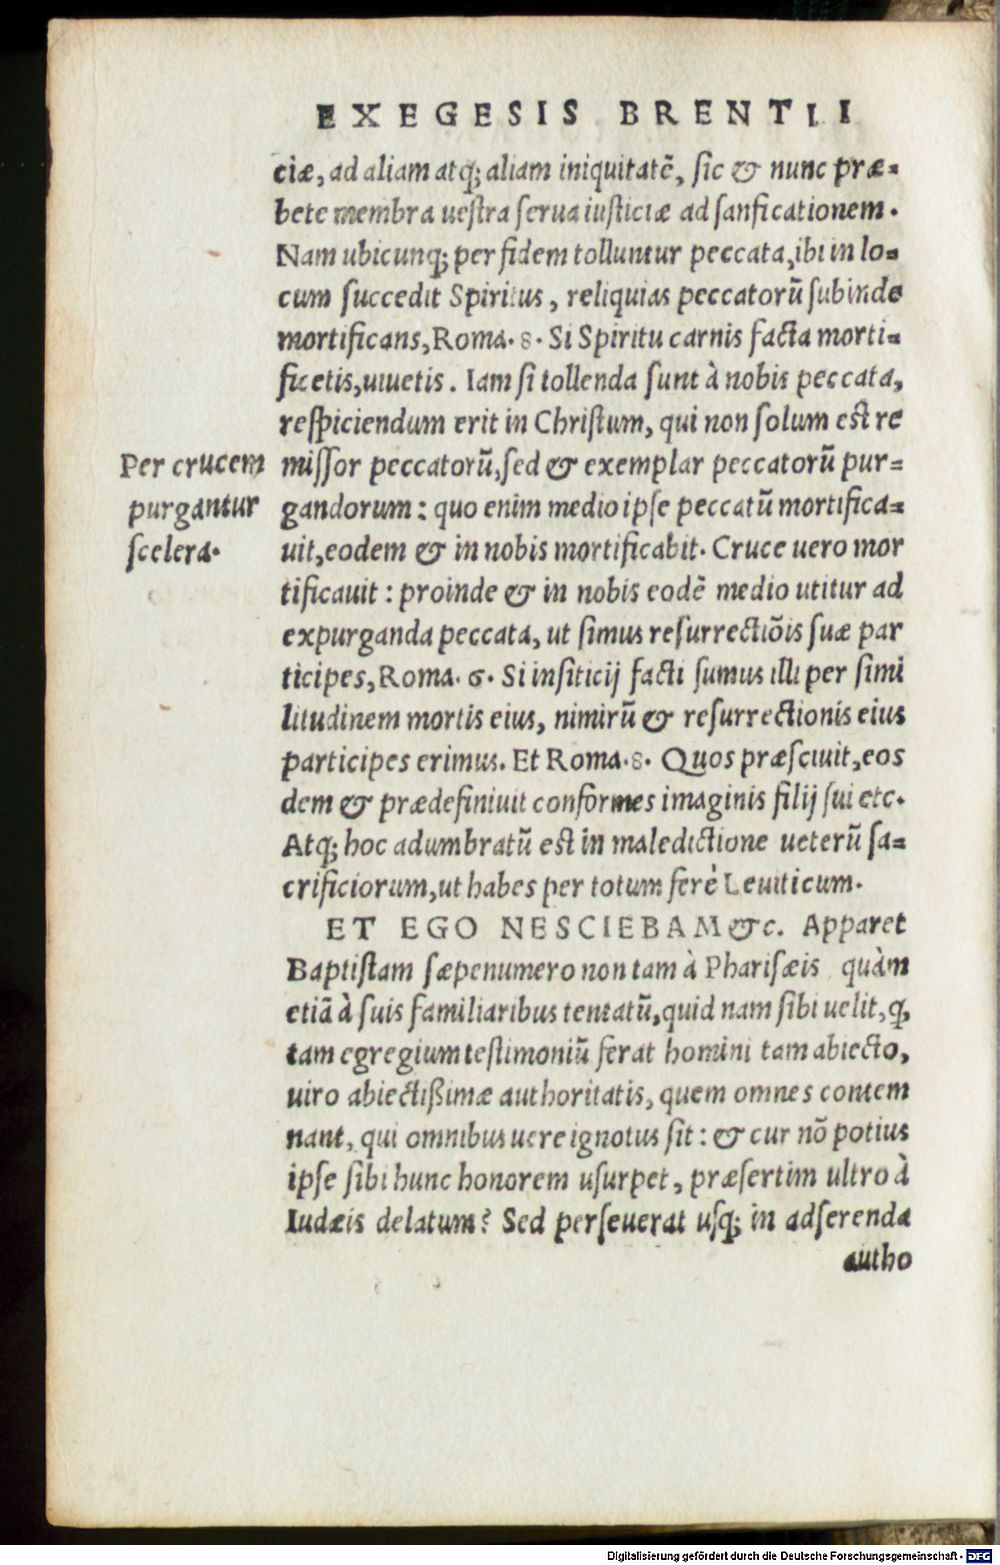 EXEGESIS BRENTII
ciæ, ad aliam atq; aliam iniquitatē, sic & nunc præ-
bete membra uestra serua iusticiæ ad sanficationem.
Nam ubicunq; per fidem tolluntur peccata, ibi in lo-
cum succedit Spiritus, reliquias peccatorū subinde
mortificans, Roma. 8. Si Spiritu carnis facta morti-
ficetis, uiuetis. Iam si tollenda sunt à nobis peccata,
respiciendum erit in Christum, qui non solum est re
missor peccatorū, sed & exemplar peccatorū pur-
gandorum: quo enim medio ipse peccatū mortifica-
uit, eodem & in nobis mortificabit. Cruce uero mor
tificauit: proinde & in nobis eodē medio utitur ad
expurganda peccata, ut simus resurrectiōis suæ par
ticipes, Roma. 6. Si insiticij facti sumus illi per simi
litudinem mortis eius, nimirū & resurrectionis eius
participes erimus. Et Roma. 8. Quos præsciuit, eos
dem & prædefiniuit conformes imaginis filij sui etc.
Atq; hoc adumbratū est in maledictione ueterū sa-
crificiorum, ut habes per totum ferè Leuiticum.
Per crucem
purgantur
scelera.
ET EGO NESCIEBAM &c. Apparet
Baptistam sæpenumero non tam à Pharisæis quàm
etiā à suis familiaribus tentatū, quid nam sibi uelit, ꝙ
tam egregium testimoniū ferat homini tam abiecto,
uiro abiectißimæ authoritatis, quem omnes contem
nant, qui omnibus uere ignotus sit: & cur nō potius
ipse sibi hunc honorem usurpet, præsertim ultro à
Iudæis delatum? Sed perseuerat usq; in adserenda
autho
Digitalisierung gefördert durch die Deutsche Forschungsgemeinschaft - DFG